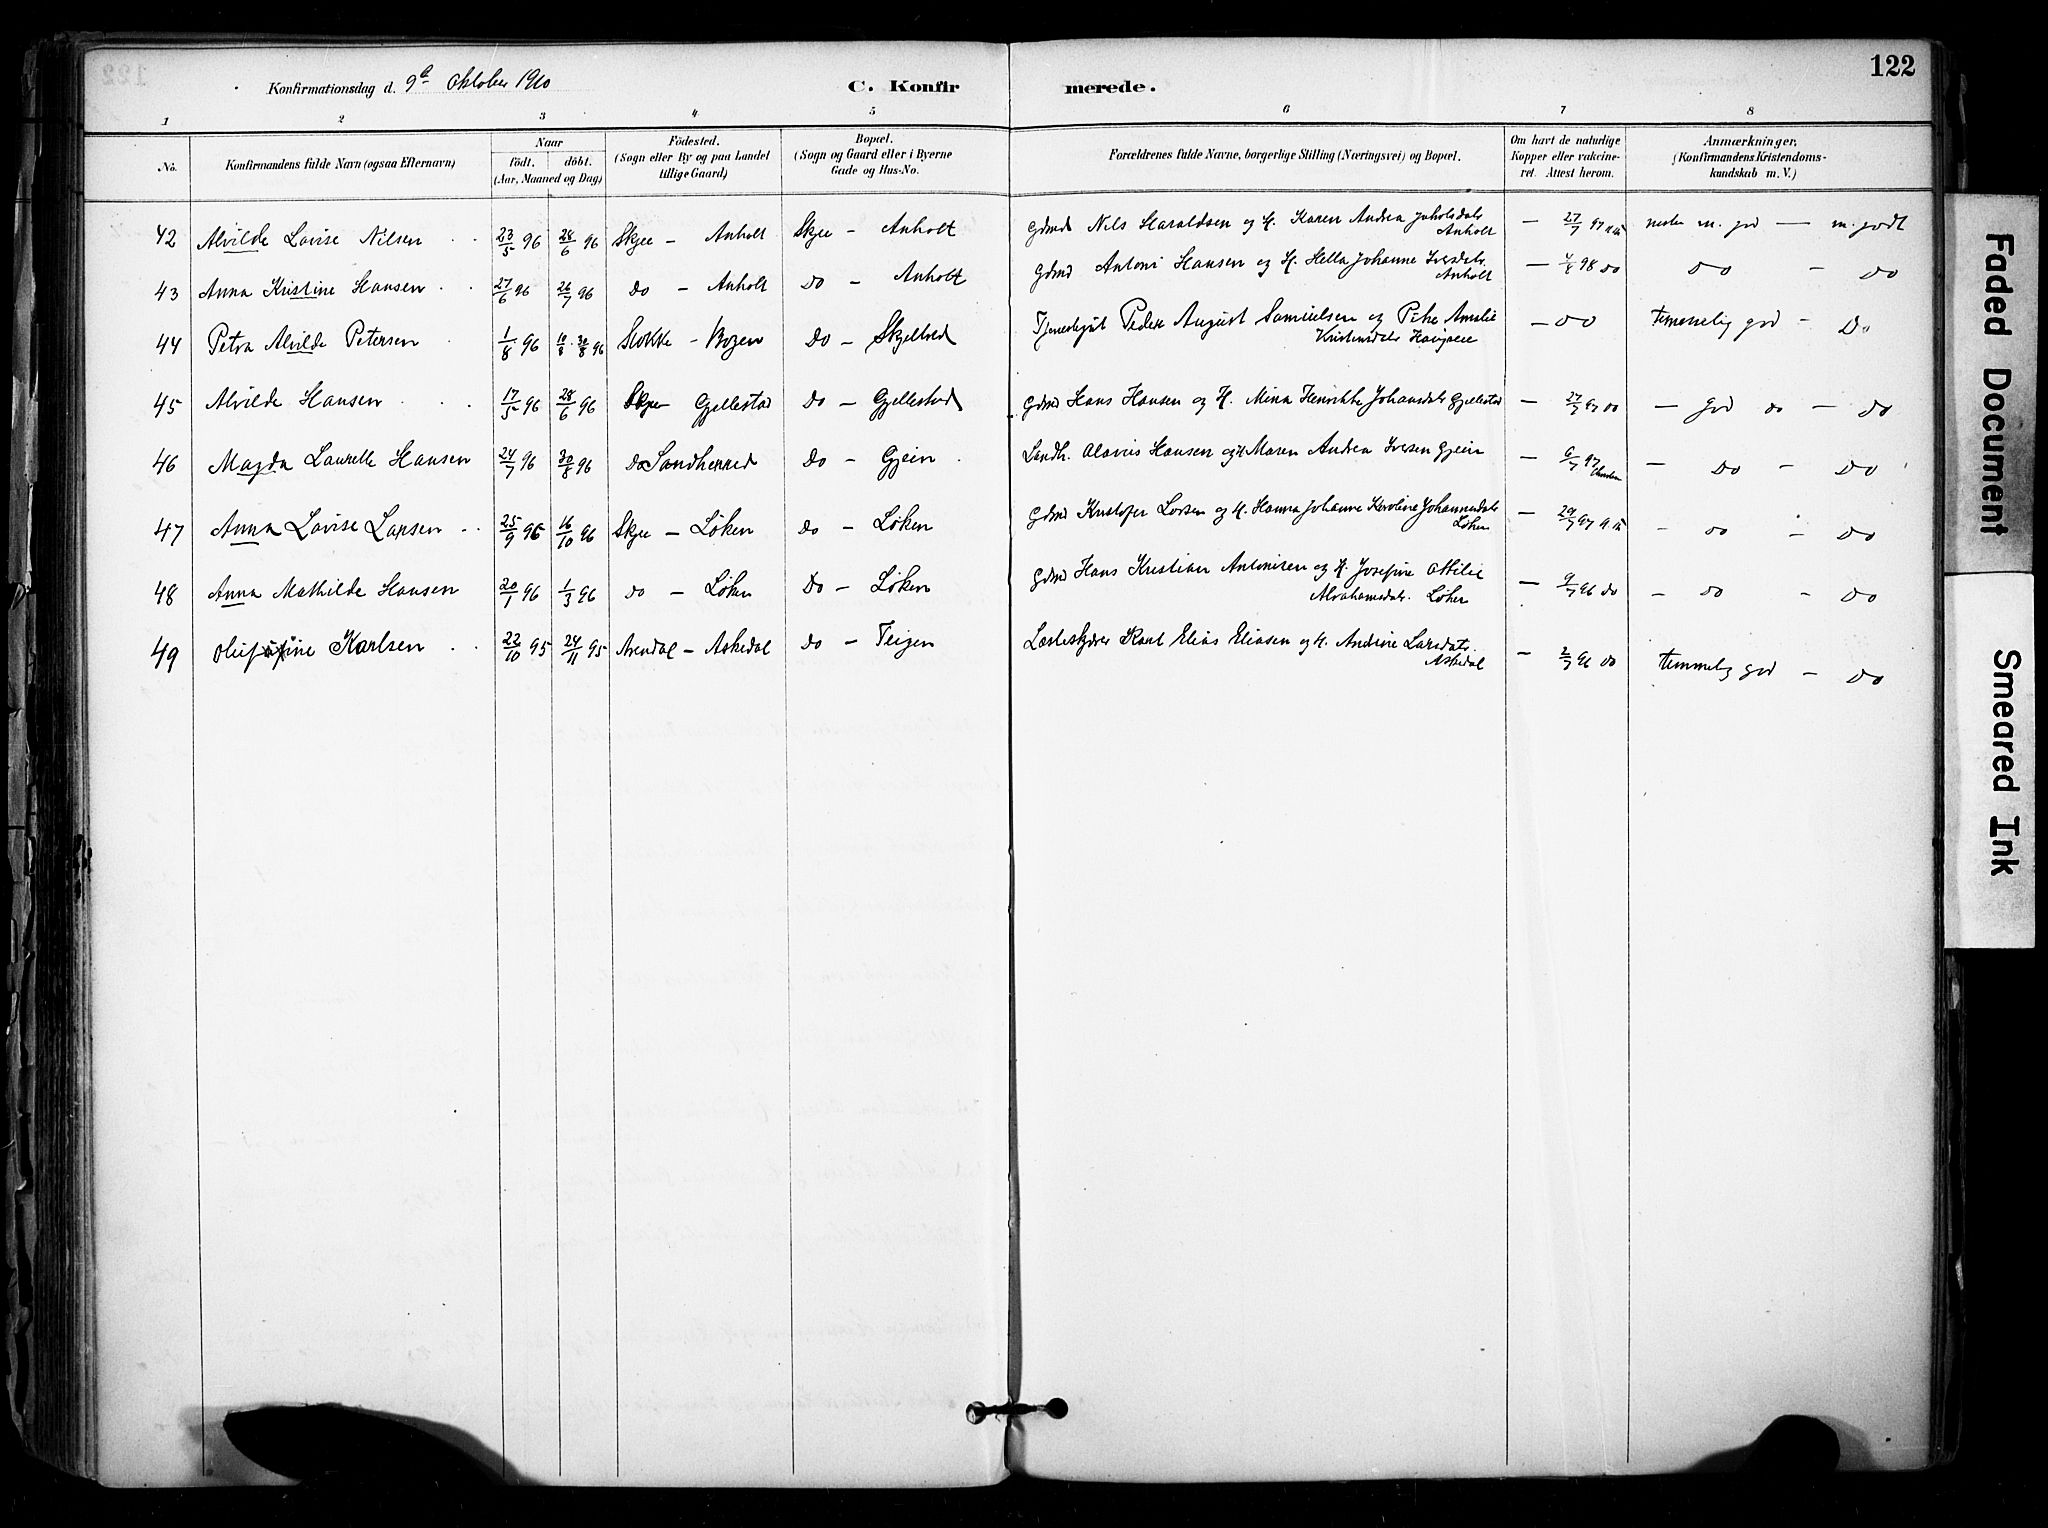 122
Konfirmationsdag d. 9de Oktober 1910
C. Konfirmerede.
1 2 3 4 5 6 7 8
No. Konfirmandens fulde Navn (ogsaa Efternavn) Naar födt. döbt. (Aar, Maaned og Dag) Födested. (Sogn eller By og paa Landet tillige Gaard) Bopæl. (Sogn og Gaard eller i Byerne Gade og Hus-No. Forældrenes fulde Navne, borgerlige Stilling (Næringsvei) og Bopæl. Om havt de naturlige Kopper eller vakcineret. Attest herom. Anmærkninger, (Konfirmandens Kristendomskundskab m. V.)
42 Alvilde Lovise Nilsen 23/5 96 28/6 96 Skjee – Anholt Skjee – Anholt Gdmd Nils Haraldsen og H. Karen Andrea Anholt – 27/7 97 m. god — m. godt
43 Anna Kristine Hansen 27/6 96 26/7 96 do – Anholt do – Anholt Gdmd Antoni Hansen og H. Hella Johanne Iversdatr Anholt – 4/8 98 do do – do
44 Petra Alvilde Petersen 1/8 96 10/8 · 30/8 96 Stokke – Bogen do – Skjelbred Peder August Samuelsen og Pike Amalie Kristensdatr – do temmelig god – do
45 Alvilde Hansen 17/5 96 28/6 96 Skjee Gjellestad do – Gjellestad Gdmd Hans Hansen og H. Mina Henrikke Johansdatr Gjellestad – 27/7 97 do – god do – do
46 Magda Laurette Hansen 24/7 96 30/8 96 do Sandherred do – Gjein Landh. Olavus Hansen og H. Maren Andrea Iversen Gjein – 9/7 97 – do – do
47 Anna Lovise Larsen 25/9 96 16/10 96 Skjee – Løken do – Løken Gdmd Kristofer Larsen og H. Hanna Johanne Karoline Johannesdatr Løken – 29/7 97 – do – do
48 Anna Mathilde Hansen 20/1 96 1/3 96 do – Løken do – Løken Gdmd Hans Kristian Antonisen og H. Josefine Ottilie Abrahamsdatr. Løken – 9/7 96 do – do – do
49 Karlsen 22/10 95 24/11 95 Arendal – Askedal do – Teigen Karl Elias Eliasen og H. Andrine Larsdatr. Askedal – 2/7 96 do temmelig god – do
Faded Document
Smeared Ink